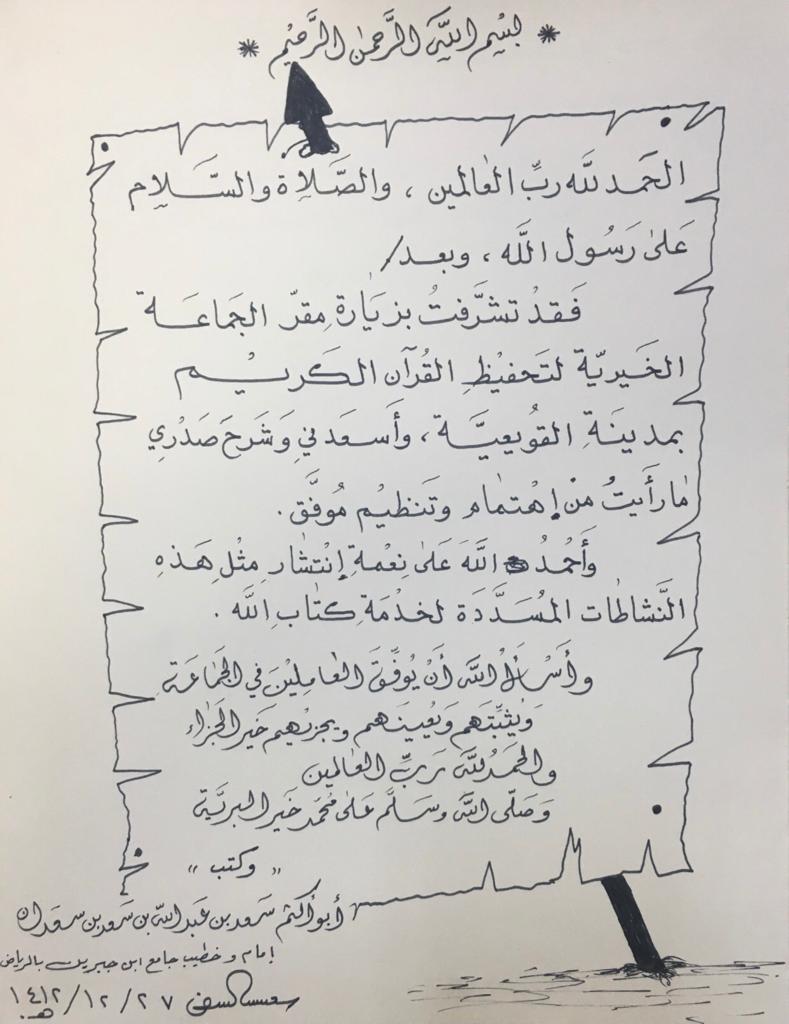 * بِسْمِ اللَّهِ الرَّحمٰنِ الرَّحِيْمِ *
الحَمد للَّه ربِّ العٰالمين ، والصَّلاِة والسَّلاِم
عَلىٰ رَسُول اللَّه ، وبعد/
فَقدْ تشرَّفتُ بزيَارةِ مِقرّ الجَماعَة
الخَيريّة لتَحفيْظِ القُرآن الكَريْم
بمدينَةِ القوُيعيَّة ، وأَسعَدنيِ وَشَرحَ صَدْرِي
مٰا رأَيتُ مِنْ إهْتمٰام وتَنظيْم مُوفَّق .
وأَحْمُدُ اللَّهَ عَلىٰ نِعْمةِ إنْتشٰار مثْل هَذهِ
النَّشاطٰات المُسَدَّدَة لخدْمَةِ كتٰابِ اللَّه .
وأَسْأَلُ اللَّهَ أَنْ يُوفِّقَ العٰامِليْنَ في الجَمٰاعَةِ
وَيُثبِّتَهم وَيُعينَهم ويجزيْهم خَير الجَزٰاء
والحَمدُ للَّهِ رَبِّ العٰالمين
وَصَلّى اللَّهُ وسَلَّم عَلىٰ محُمَّد خَير البريَّة
" وكتب "
أبو أكثم سَعد بن عَبد اللَّه بن سَعد بن سعدان
إمام وخطيب جامع ابن جبرين بالرياض
١٤١٢/١٢/٢٧هـ